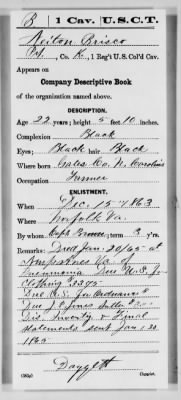 B | 1 Cav. | U.S.C.T.
Neiton Brisco
Pvt., Co. K, 1 Reg't U.S. Col'd Cav.
Appears on
Company Descriptive Book
of the organization named above.
DESCRIPTION.
Age 22 years; height 5 feet 10 inches.
Complexion Black
Eyes Black; hair Black
Where born Gates Co. N. Carolina
Occupation Farmer
ENLISTMENT.
When Dec. 15, 1863
Where Norfolk Va.
By whom Capt. ; term 3 y'rs.
Remarks: Died Jan. 20/65 at
Va. of
Pneumonia Due U.S. for
Clothing $3375
Due U.S. for Ordnance
Due J. Jones Sutler
Final
statements sent Jan 30
1865
Daggett
Copyist.